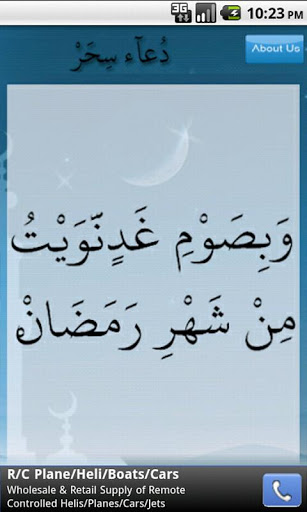 3G 10:23 PM
دُعآء سِحَرْ
About Us
وَبِصَوْمِ غَدٍنَّوَيْتُ
مِنْ شَهْرِ رَمَضَانْ
R/C Plane/Heli/Boats/Cars
Wholesale & Retail Supply of Remote
Controlled Helis/Planes/Cars/Jets